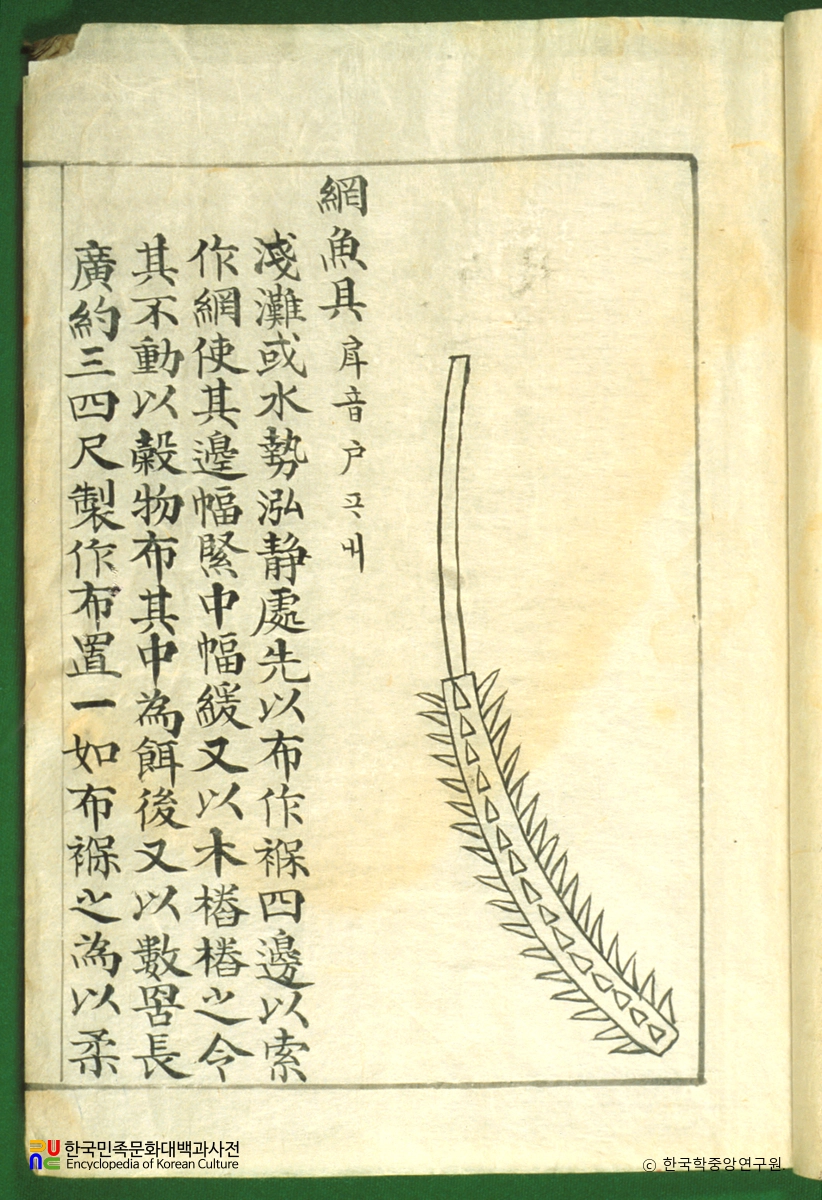 網魚具 戽音戶 고내
淺灘或水勢泓静處先以布作褓四邊以索
作網使其邊幅緊中幅緩又以木樁樁之令
其不動以穀物布其中為餌後又以數罟長
廣約三四尺製作布置一如布褓之為以柔
한국민족문화대백과사전
Encyclopedia of Korean Culture
© 한국학중앙연구원